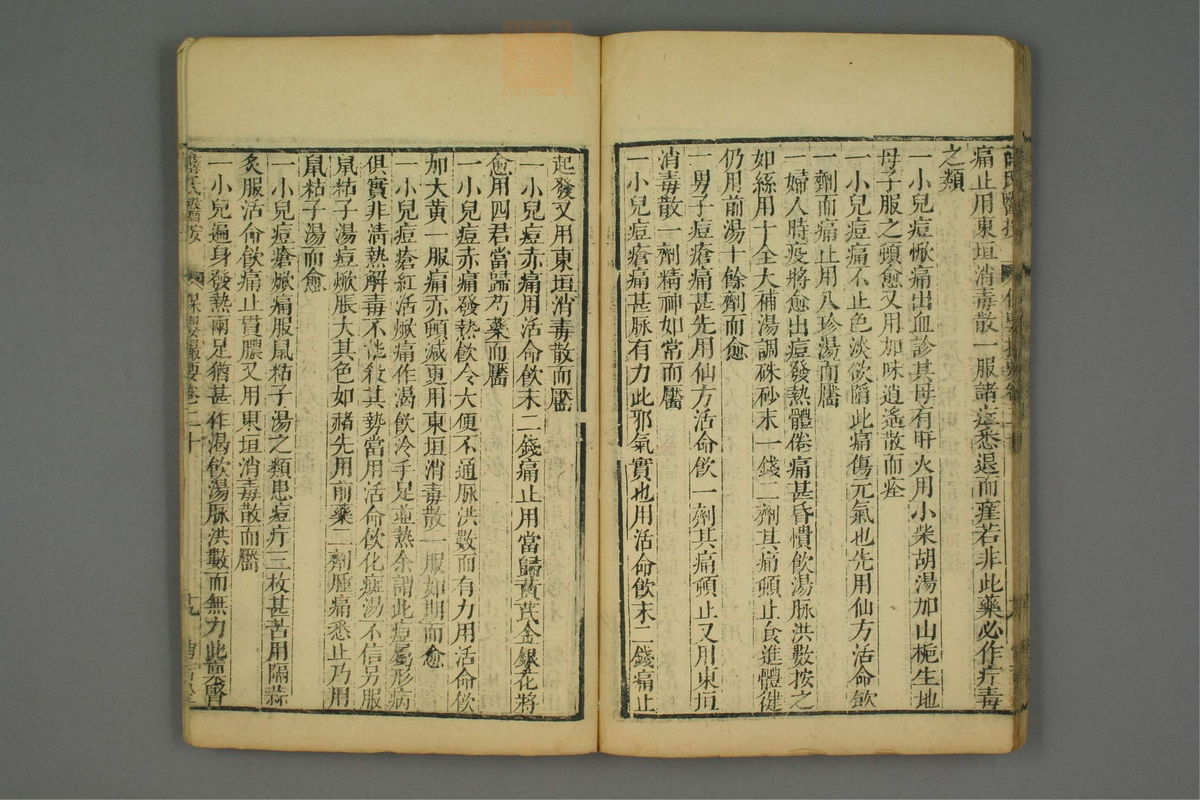 痛止用東垣消毒散一服諸症悉退而痊若非此藥必作疔毒
之類
一小兒痘㷀痛出血診其母有肝火用小柴胡湯加山梔生地
母子服之頓愈又用加味逍遙散而痊
一小兒痘痛不止色淡欲陷此痛傷元氣也先用仙方活命飲
一劑而痛止用八珍湯而靨
一婦人時疫將愈出痘發熱體倦痛甚昏憒飲湯脉洪數按之
如絲用十全大補湯調硃砂末一錢二劑其痛頓止食進體健
仍用前湯十餘劑而愈
一男子痘瘡痛甚先用仙方活命飲一劑其痛頓止又用東垣
消毒散一劑精神如常而靨
一小兒痘瘡痛甚脉有力此邪氣實也用活命飲末二錢痛止
起發又用東垣消毒散而靨
一小兒痘赤痛用活命飲末二錢痛止用當歸黃芪金銀花將
愈用四君當歸芍藥而靨
一小兒痘赤痛發熱飲冷大便不通脉洪數而有力用活命飲
加大黃一服痛亦頓减更用東垣消毒散一服如期而愈
一小兒痘瘡紅活焮痛作渴飲冷手足並熱余謂此痘屬形病
俱實非清熱解毒不能殺其勢當用活命飲化斑湯不信另服
鼠粘子湯痘焮脹大其色如赭先用前藥二劑腫痛悉止乃用
鼠粘子湯而愈
一小兒痘瘡焮痛服鼠粘子湯之類患痘疔三枚甚苦用隔蒜
灸服活命飲痛止貫膿又用東垣消毒散而靨
一小兒遍身發熱兩足猶甚作渴飲湯脉洪數而無力此
薛氏醫按 保嬰撮要卷二十 十九